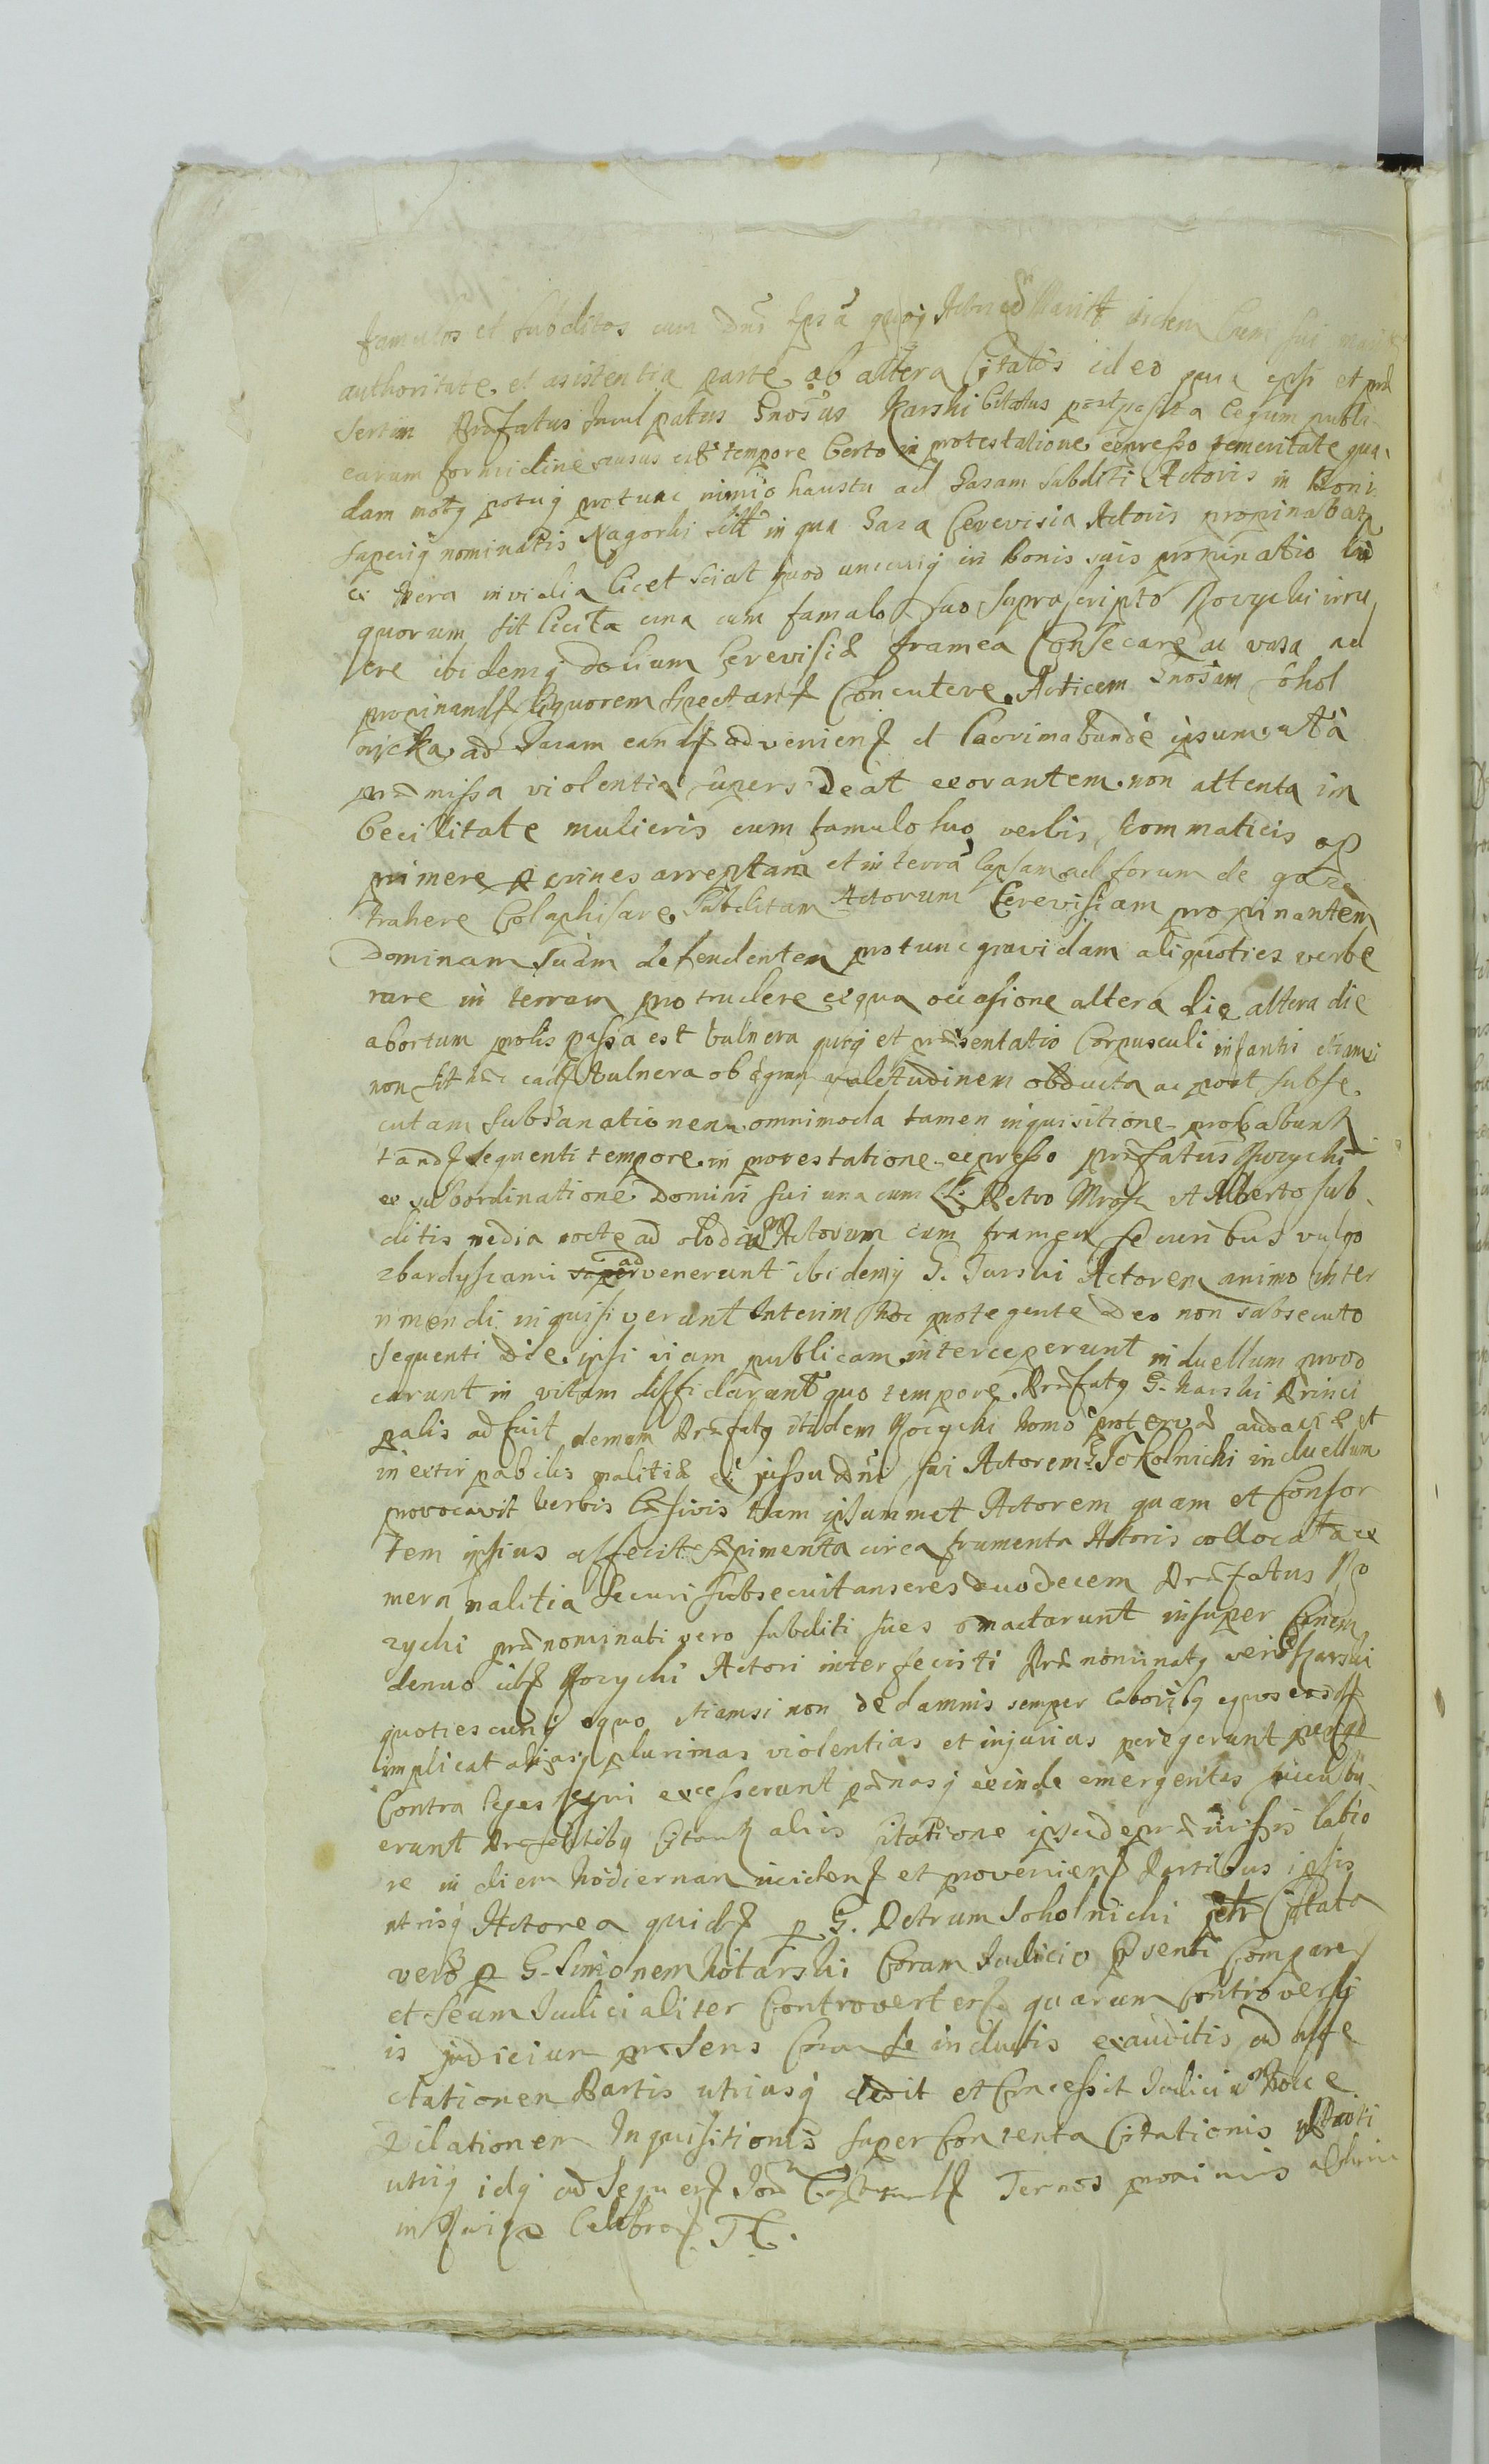 famulos et subditos cum
authoritate et asistentia parte ab altera Citatos ideo quia ipsi et prae
sertim Praefatus Inculpatus Gnosus Karski Citatus postposita legum publi-
carum formidine ausus est tempore Certo in protestatione expresso temeritate qua
dam motq potuq protunc nimio haustu ad Tasam subditi Actoris in Boni
superiq nominatis Nagorki in qua Tasa Cerevisia Actoris propinabat
ex mera invidia licet sciat quod unicuiq in bonis suis propinatio
quorum sit licita una cum famulo suo suprascripto Rozycki irru
ere ibidemq dolium Cerevisiae framea Consecare ac vasa ad
propinand liquorem spectant Concutere Actricem Gnosam Sokol
nicka ad Tasam eand advenient et lacrimabunde ipsum ut à
praemissa violentia supersedeat exorantem non attenta im
becilitate mulieris cum famulo suo verbis kommaticis op
primere p crines arreptam et in terra lapsam ad forum de
trahere Colaphisare Subditam Actorum Cerevisiam propinantem
Dominam suam defendentem protunc gravidam aliquoties verbe
rare in terram protrudere ex qua occasione altera die altera die
abortum prolis passa est vulnera quoq et praesentatio Corpusculi infantis etiamsi
non sit vulnera ob aegram valetudinem obducta ac post subse
cutam subsanationem omnimoda tamen inquisitione probabunt
tand sequenti tempore in protestatione expresso praefatus Rozycki
ex subordinatione Domini sui una cum LL Petro Mrosk et Alberto sub
ditis media nocte ad Actorum cum framea securibus vulgo
zbardyszami advenerunt ibidemq G. Turski Actorem animo inter
rimendi inquisiverunt Interim hoc protegente Deo non subsecuto
sequenti Die ipsi viam publicam interceperunt in duellum provo
carunt in vitam diffidarunt quo tempore Praefatq G. Karski Princi
palis adfuit demum Praefatq itidem Rozycki homo protervae audaciae et
inextirpabilis malitiae ex jussu Dni sui Actorem G. Sokolnicki in duellum
provocavit verbis laesivis tam ipsummet Actorem quam et Consor
tem ipsius affecit saepimenta circa frumenta Actoris collocata ex
mera malitia securi subsecuit anseres duodecem Praefatus Ro
zycki praenominati vero subditi sues mactarunt insuper Canem
denuo Rozycki Actori interfecisti Praenominatq vero Karski
quotiescunq equo etiamsi non de damnis semper laboribq equos eosd
implicat aliasq plurimas violentias et injurias peregerunt
Contra leges regni excesserunt paenasq exinde emergentes succubu
erunt Citant aliis citatione ipsa de praemissis latio
re in diem hodiernam incident et provenient Partibus ipsis
utrisq Actorea quid p G. Petrum Sokolnicki Citata
vero p G. Simonem Kotarski Coram Iudicio psenti Comparen
et secum Iudicialiter Controverten quarum Controversy
is judicium praesens Coram se inductis exauditis ad affe
ctationem Partis utriusq dedit et Concessit Iudicium hocce
Dilationem Inquisitionis super Contenta Citationis Parti
utriq idq ad Sequen Ternos proximis
in Celebran